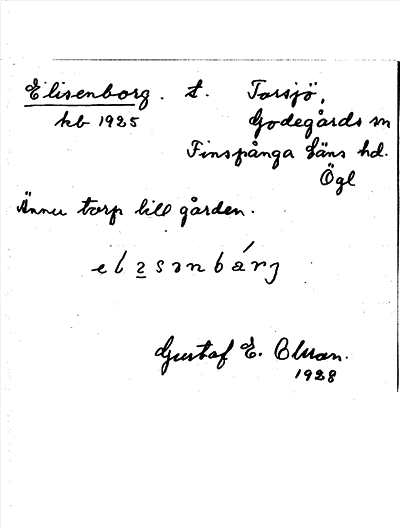 Elisenborg. t. Torsjö,
kb 1925 Godegårds sn
Finspånga läns hd.
Ögl
Ännu torp till gården.
Gustaf E. Olsson.
1928